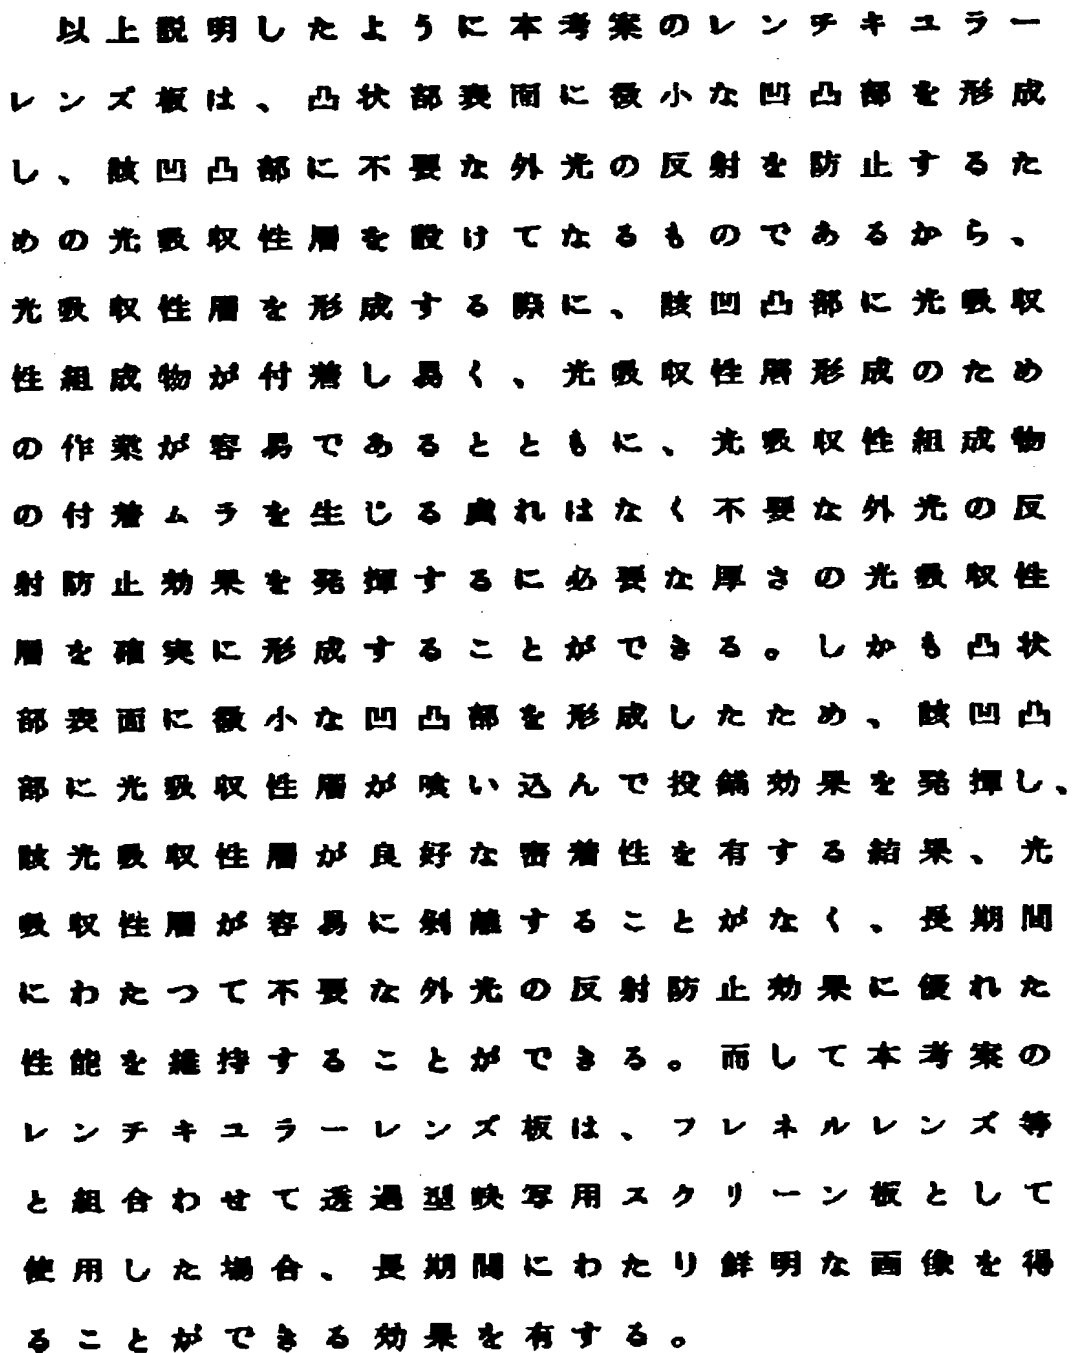 以上説明したように本考案のレンチキユラー
レンズ板は、凸状部表面に微小な凹凸部を形成
し、該凹凸部に不要な外光の反射を防止するた
めの光吸収性層を設けてなるものであるから、
光吸収性層を形成する際に、該凹凸部に光吸収
性組成物が付着し易く、光吸収性層形成のため
の作業が容易であるとともに、光吸収性組成物
の付着ムラを生じる虞れはなく不要な外光の反
射防止効果を発揮するに必要な厚さの光吸収性
層を確実に形成することができる。しかも凸状
部表面に微小な凹凸部を形成したため、該凹凸
部に光吸収性層が喰い込んで投錨効果を発揮し、
該光吸収性層が良好な密着性を有する結果、光
吸収性層が容易に剝離することがなく、長期間
にわたつて不要な外光の反射防止効果に優れた
性能を維持することができる。而して本考案の
レンチキユラーレンズ板は、フレネルレンズ等
と組合わせて透過型映写用スクリーン板として
使用した場合、長期間にわたり鮮明な画像を得
ることができる効果を有する。